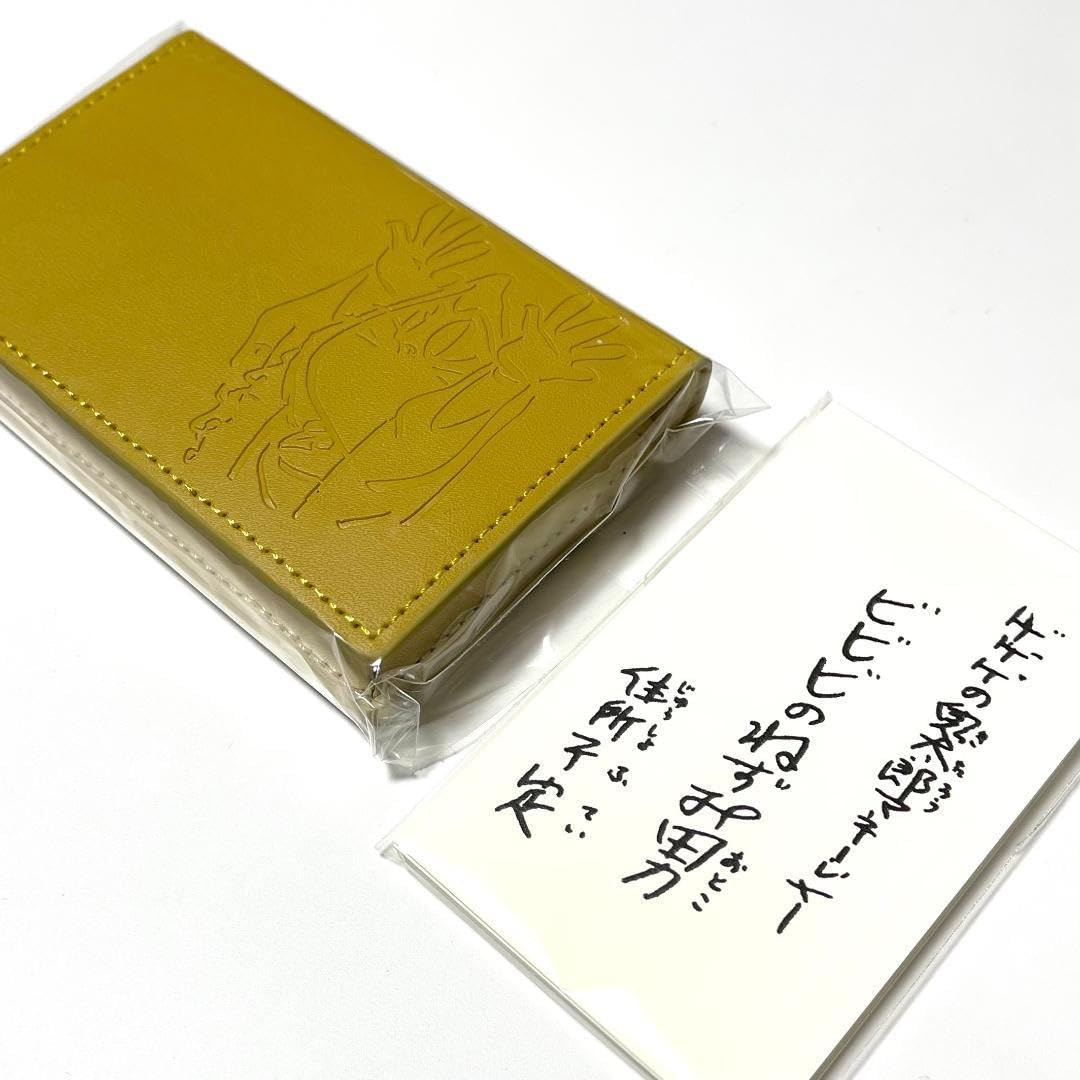 ゲゲゲの鬼太郎マネージャー
ビビビのねずみ男
住所不定